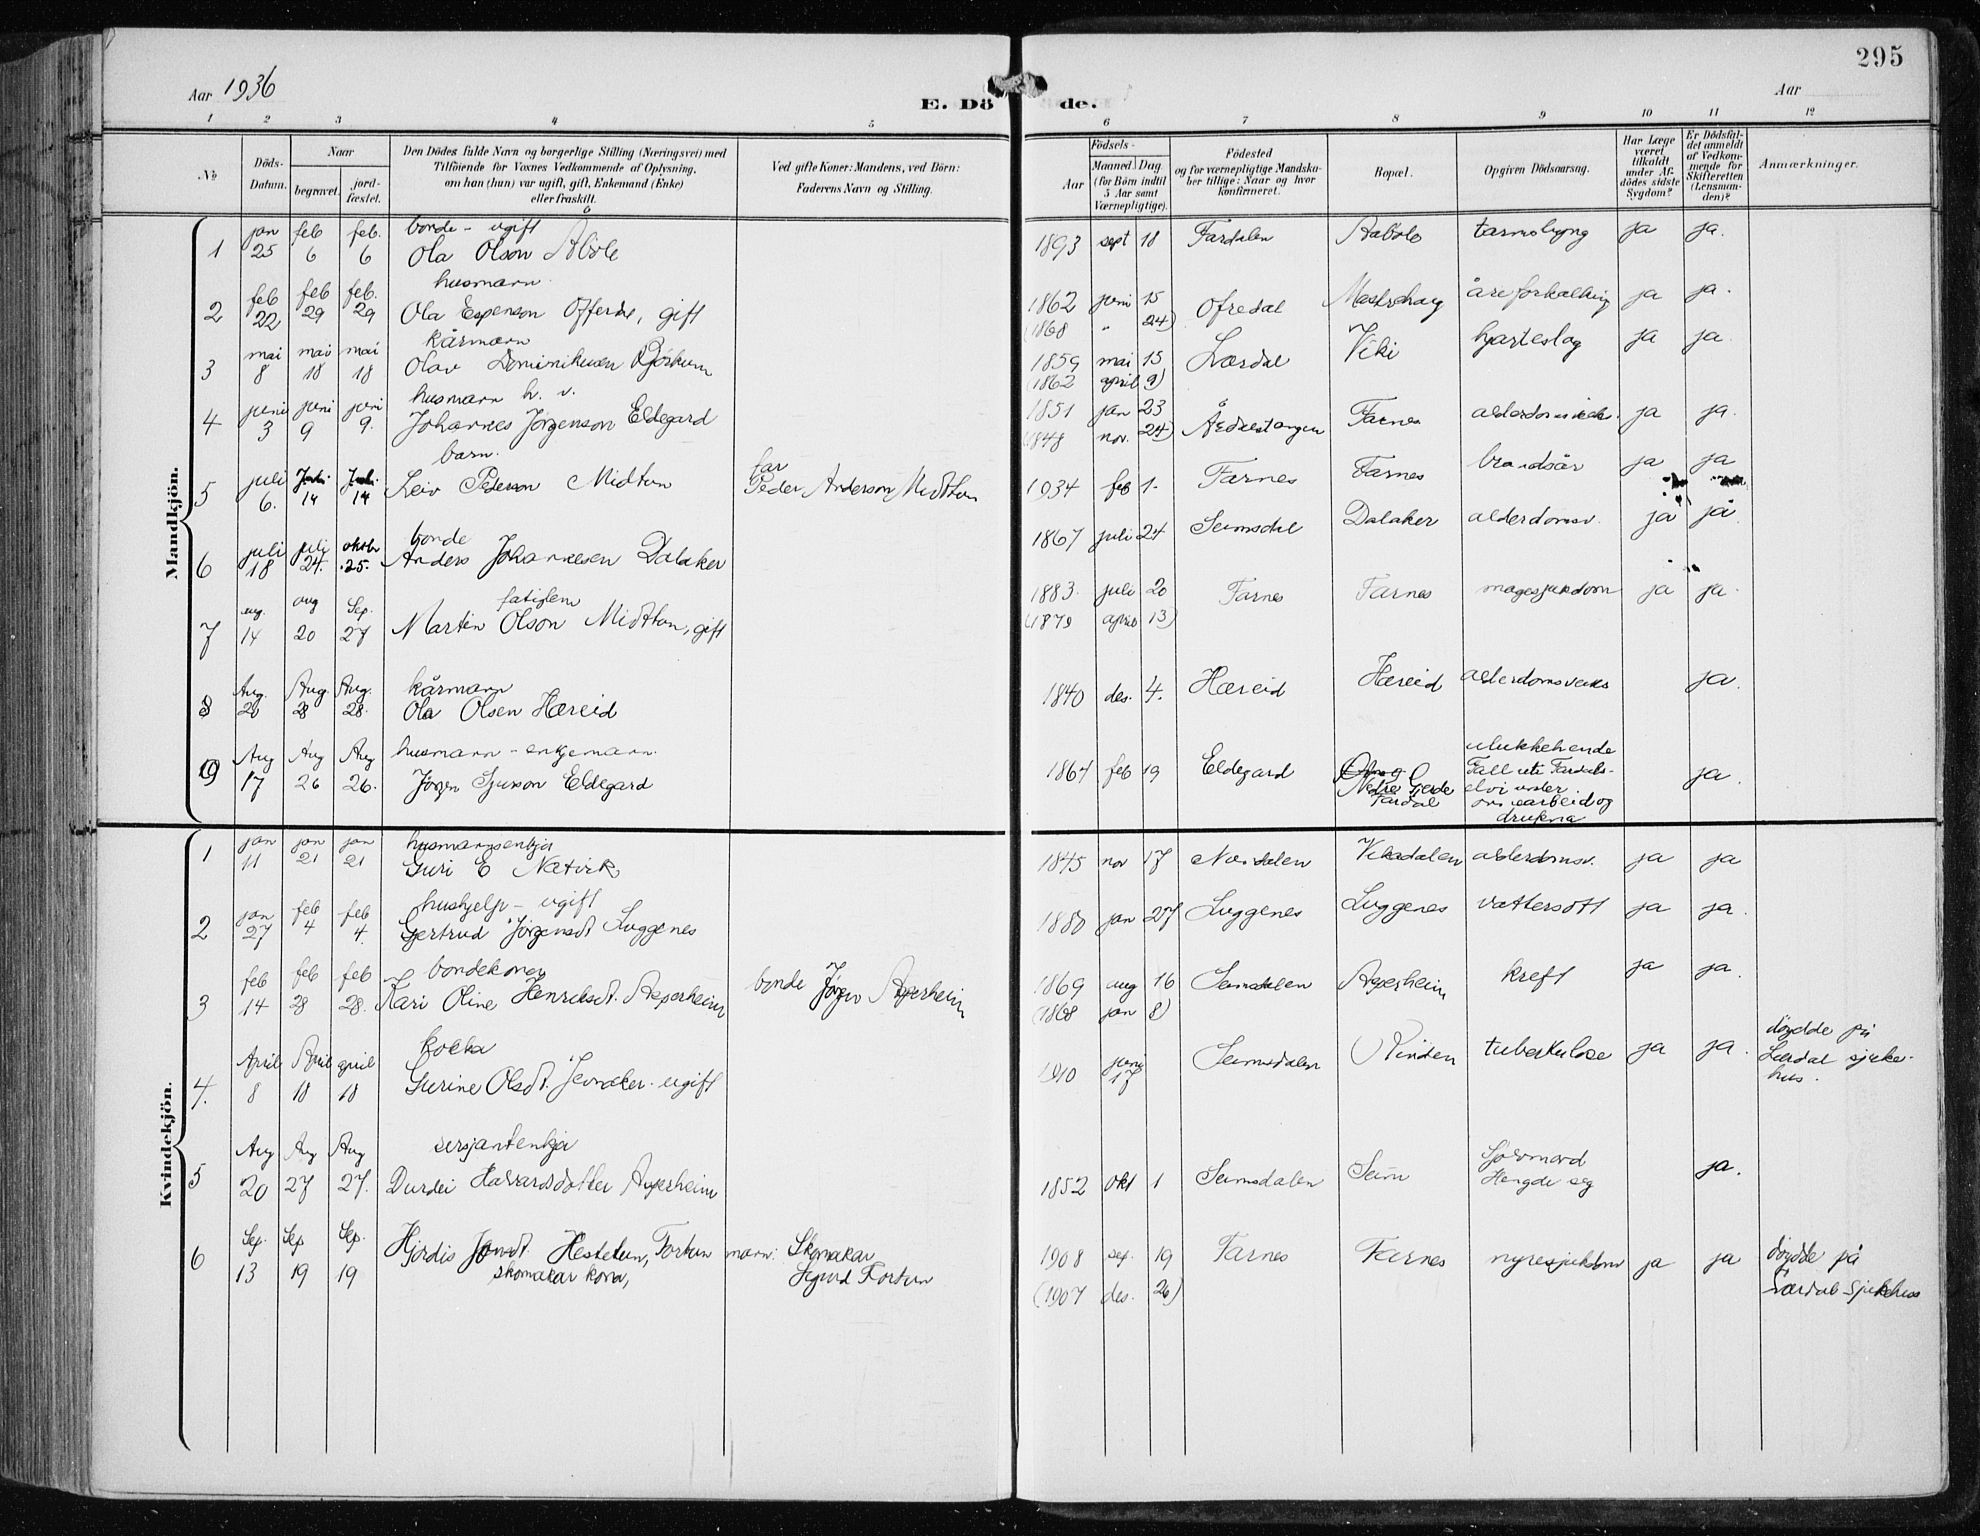 295
Aar 1936
E. Döde.
Aar
1 2 3 4 5 6 7 8 9 10 11 12
No.
Döds-Datum.
Naar
begravet.
jord-fæstet.
Den Dödes fulde Navn og borgerlige Stilling (Næringsvei) med
Tilföiende for Voxnes Vedkommende af Oplysning,
om han (hun) var ugift, gift, Enkemand (Enke)
eller fraskilt.
Ved gifte Koner: Mandens, ved Börn:
Faderens Navn og Stilling.
Födsels-
Aar
Maaned. Dag
(for Börn indtil
5 Aar samt
Værnepligtige).
Födested
og for værnepligtige Mandska-
ber tillige: Naar og hvor
konfirmeret.
Bopæl.
Opgiven Dödsaarsag.
Har Læge
været
tilkaldt
under Af-
dödes sidste
Sygdom?
Er Dödsfal-
det anmeldt
af Vedkom-
mende for
Skifteretten
(Lensman-
den)?
Anmærkninger.
Mandkjön.
1 jan 25 feb 6 feb. 6 bonde - ugift
Ola Olson Åbøle 1893 sept 18 Fardalen Aabøle tarmslyng ja ja.
2 feb 22 feb 29 feb. 29 husmann
Ola Espenson Offerdal, gift 1862 juni 15 Ofredal åreforkalking ja ja.
(1868 " 24)
3 mai 8 mai 18 mai 18 kårmann
Olav Bjørkum 1859 mai 15 Lærdal Viki hjarteslag ja ja.
(1862 april 9)
4 juni 3 juni 9 juni 9. husmann h. v.
Johannes Jørgenson Eldegard 1851 jan 23 Årdalstangen Farnes ja ja.
(1848 nov. 24)
5 juli 6. Juli 14 Juli 14 barn.
Leiv Pederson Midtun far
Peder Anderson Midttun 1934 feb 1. Farnes Farnes brandsår ja ja
6 juli 18 juli 24. oktbr 25. bonde
Anders Johannesen Dalaker 1867 juli 24 Seimsdal Dalaker alderdomsv. ja ja
7 aug. 14 aug 20 Sep. 27 fatiglem
Martin Olson Midttun, gift 1883. juli 20 Farnes Farnes magesjukdom ja ja.
(1879 april 13)
8 Aug. 20 Aug. 28 Aug. 28. kårmann
Ola Olsen Hæreid 1840 des. 4. Hæreid Hæreid alderdomsveiks ja.
9 Aug 17 Aug 26 Aug 26. husmann - enkjemann.
Jørgen Sjurson Eldegard 1867 feb 19 Eldegard Nedre Gjerde
Fardal ulukkehende
Fall uti Fardals-
elvi under
onnearbeid og
drukna ja.
Kvindekjön.
1 jan 11 jan 21 jan 21 husmannsenkja
Guri E Natvik 1845 nov 17 Vikadalen alderdomsv. ja ja
2 jan 27 feb 4 feb 4. hushjelp - ugift
Gjertrud Jørgensdt Luggenes 1880 jan 27 Luggenes Luggenes vattersott ja ja.
3 feb 14 feb 28 feb 28. bondekona
Kari Oline Henriksdt. Asperheim bonde Jørgen Asperheim 1869 aug 16 Seimsdalen Asperheim kreft ja ja.
(1868 jan 8)
4. April 8 April 18 april 18 kokka
Gurine Olsdt. - ugift 1910 juni 17 Seimsdalen Vinden tuberkulose ja ja. døydde på
Lærdal sjuke-
hus.
5 Aug 20 Aug 27 Aug 27. sersjantenkja
Durdei Havardsdotter Asperheim 1852 okt 1 Seimsdalen Seim Sjølvmord
Hengde seg ja.
6 Sep. 13 Sep 19 Sep. 19 Hjørdis Jonsdt. Hestetun, Fortun
skomakar kona, mann: Skomakar
Sigurd Fortun 1908 sep. 19 Farnes Farnes nyresjukdom ja ja døydde på
Lærdal Sjukehus
(1907 des. 26)